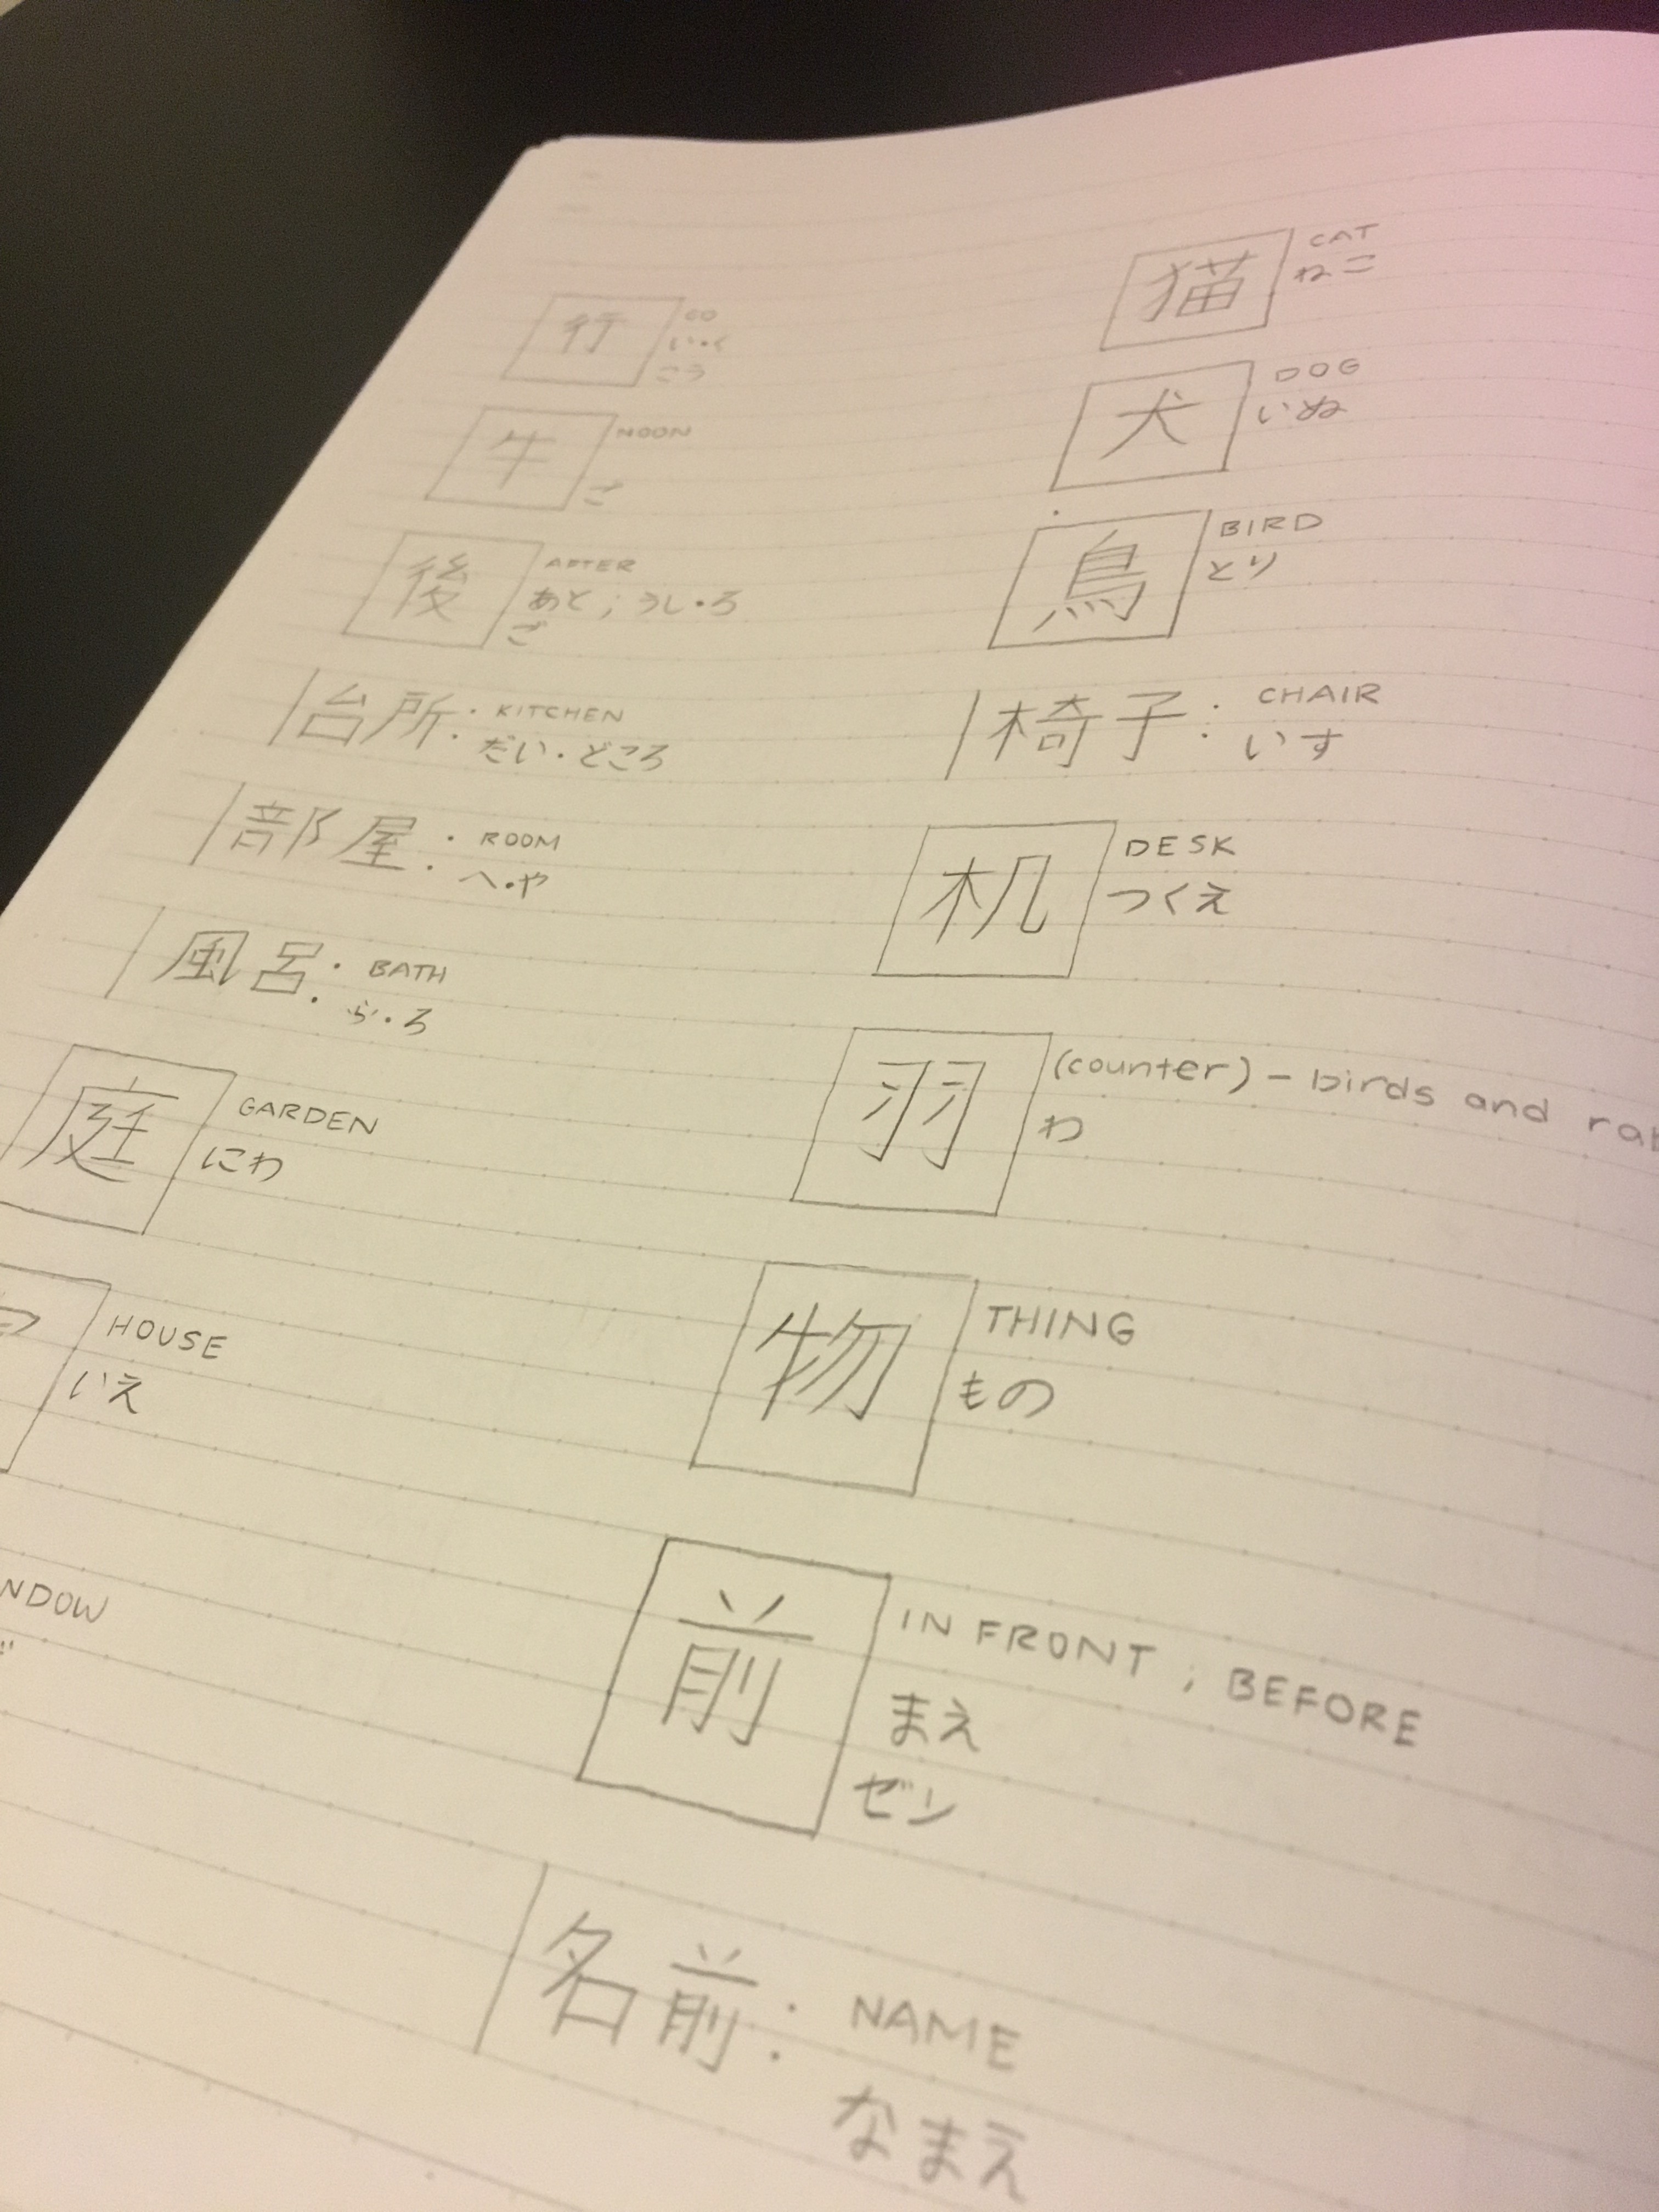 行 GO
い・く
こう
牛 NOON
ご
後 AFTER
あと；うし・ろ
ご
台所: KITCHEN
だい・どころ
部屋: ROOM
へ・や
風呂: BATH
ふ・ろ
庭 GARDEN
にわ
HOUSE
いえ
NDOW
猫 CAT
ねこ
犬 DOG
いぬ
鳥 BIRD
とり
椅子: CHAIR
いす
机 DESK
つくえ
羽 (counter) - birds and
わ
物 THING
もの
前 IN FRONT ; BEFORE
まえ
ゼン
名前: NAME
なまえ